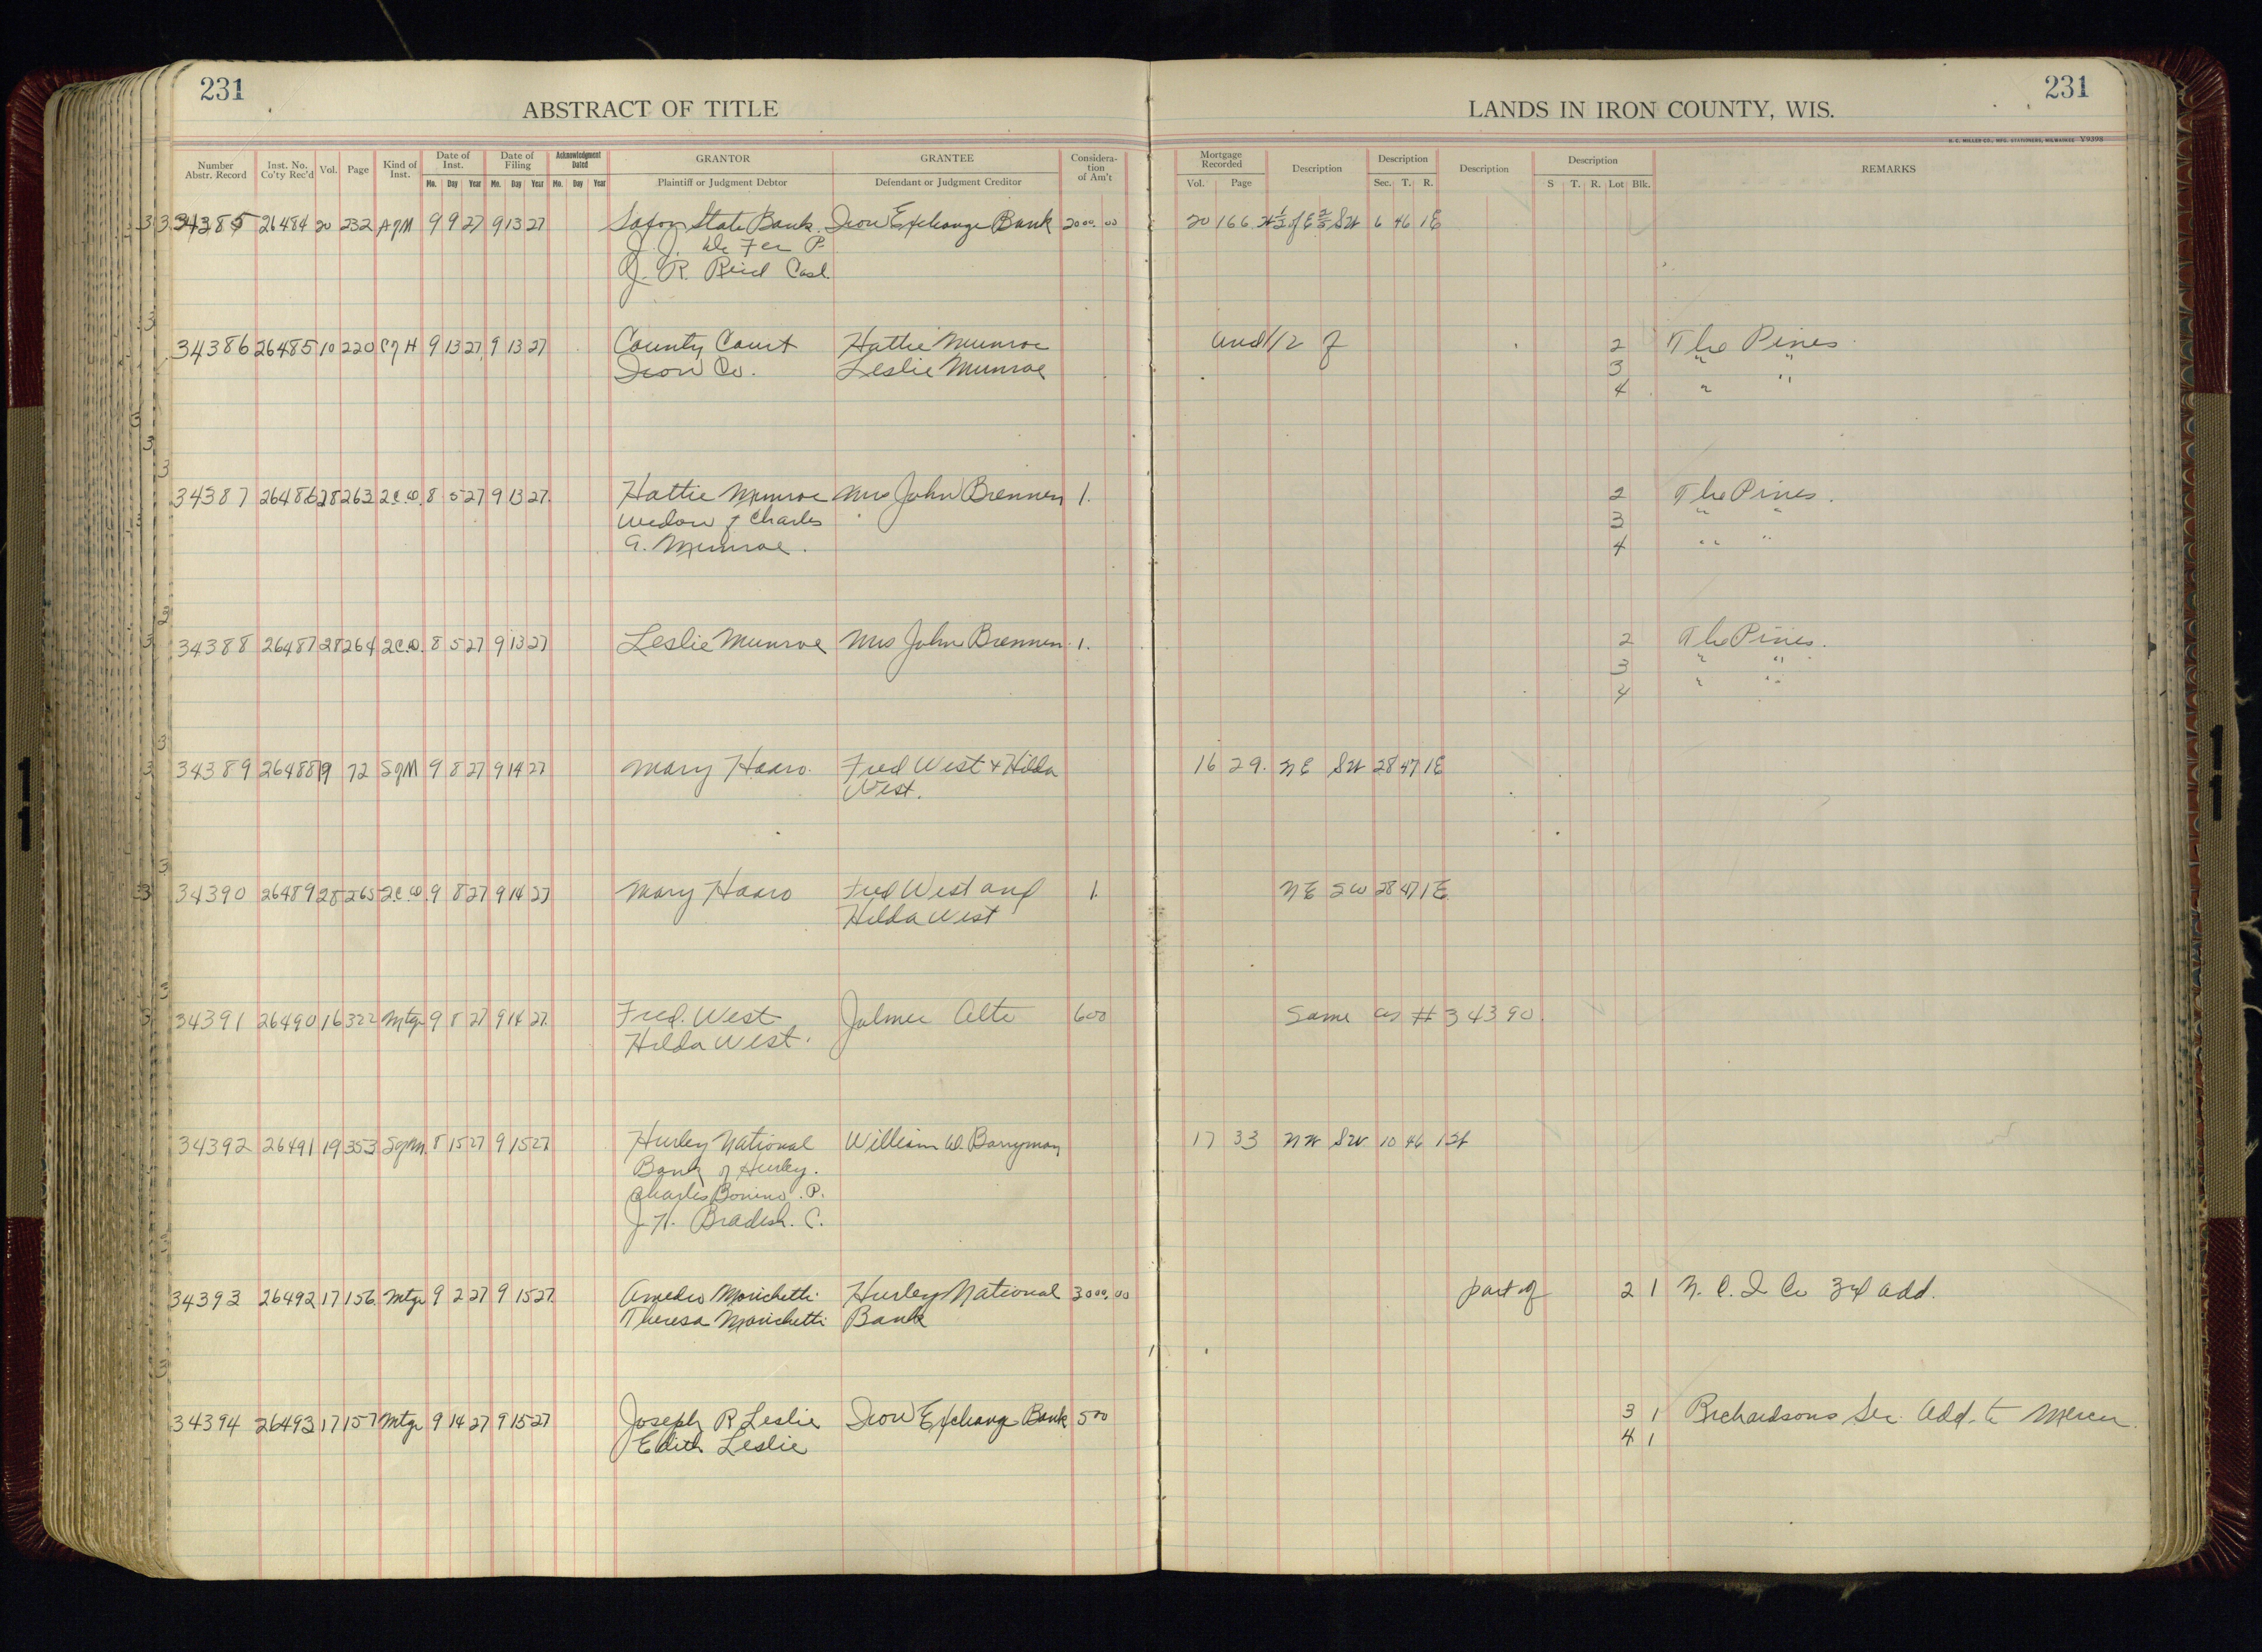 231
231
ABSTRACT OF TITLE
LANDS IN IRON COUNTY, WIS.
H. C. MILLER CO., MFG. STATIONERS, MILWAUKEE V9398
Number Abstr. Record Inst. No. Co'ty Rec'd Vol. Page Kind of Inst. Date of Inst. Date of Filing Acknowledgment Dated GRANTOR GRANTEE Consideration of Am't Mortgage Recorded Description Description Description Description REMARKS
Mo. Day Year Mo. Day Year Mo. Day Year Plaintiff or Judgment Debtor Defendant or Judgment Creditor Vol. Page Sec. T. R. S T. R. Lot Blk.
34385 26484 20 232 AgM 9 9 27 9 13 27 Saxon State Bank. Iron Exchange Bank 2000.00 20 166 6 46 1E
J. J. De Fer P.
J. R. Reid Cash.
34386 26485 10 220 9 13 27 9 13 27 County Court Hattie Munroe und 1/2 of 2 The Pines
Iron Co. Leslie Munroe 3 " "
4 " "
34387 26486 28 263 2.C.D. 8 5 27 9 13 27 Hattie Munroe Mrs John Brennen 1. 2 The Pines.
Widow of Charles 3 " "
A. Munroe. 4 " "
34388 26487 28 264 2C.D. 8 5 27 9 13 27 Leslie Munroe Mrs John Brennen 1. 2 The Pines.
3 " "
4 " "
34389 26488 19 72 SgM 9 8 27 9 14 27 Mary Haaro. Fred West & Hilda 16 29. NE SW 28 47 1E
West.
34390 26489 28 265 2.C.D. 9 8 27 9 14 27 Mary Haaro Fred West and 1. NE SW 28 47 1E
Hilda West
34391 26490 16 322 Mtge 9 8 27 9 14 27 Fred. West Jalmer Alto 600 Same as #34390.
Hilda West.
34392 26491 19 353 SgM. 8 15 27 9 15 27 Hurley National William W. Barryman 17 33 NW SW 10 46 1W
Bank of Hurley.
Charles Bonino. P.
J. H. Bradish. C.
34393 26492 17 156 Mtge 9 2 27 9 15 27 Amedeo Morichetti Hurley National 3000.00 part of 2 1 N. C. I Co 3rd Add.
Theresa Morichetti Bank
34394 26493 17 157 Mtge 9 14 27 9 15 27 Joseph R Leslie Iron Exchange Bank 500 3 1 Richardsons Sec. Add. to Mercer.
Edith Leslie 4 1